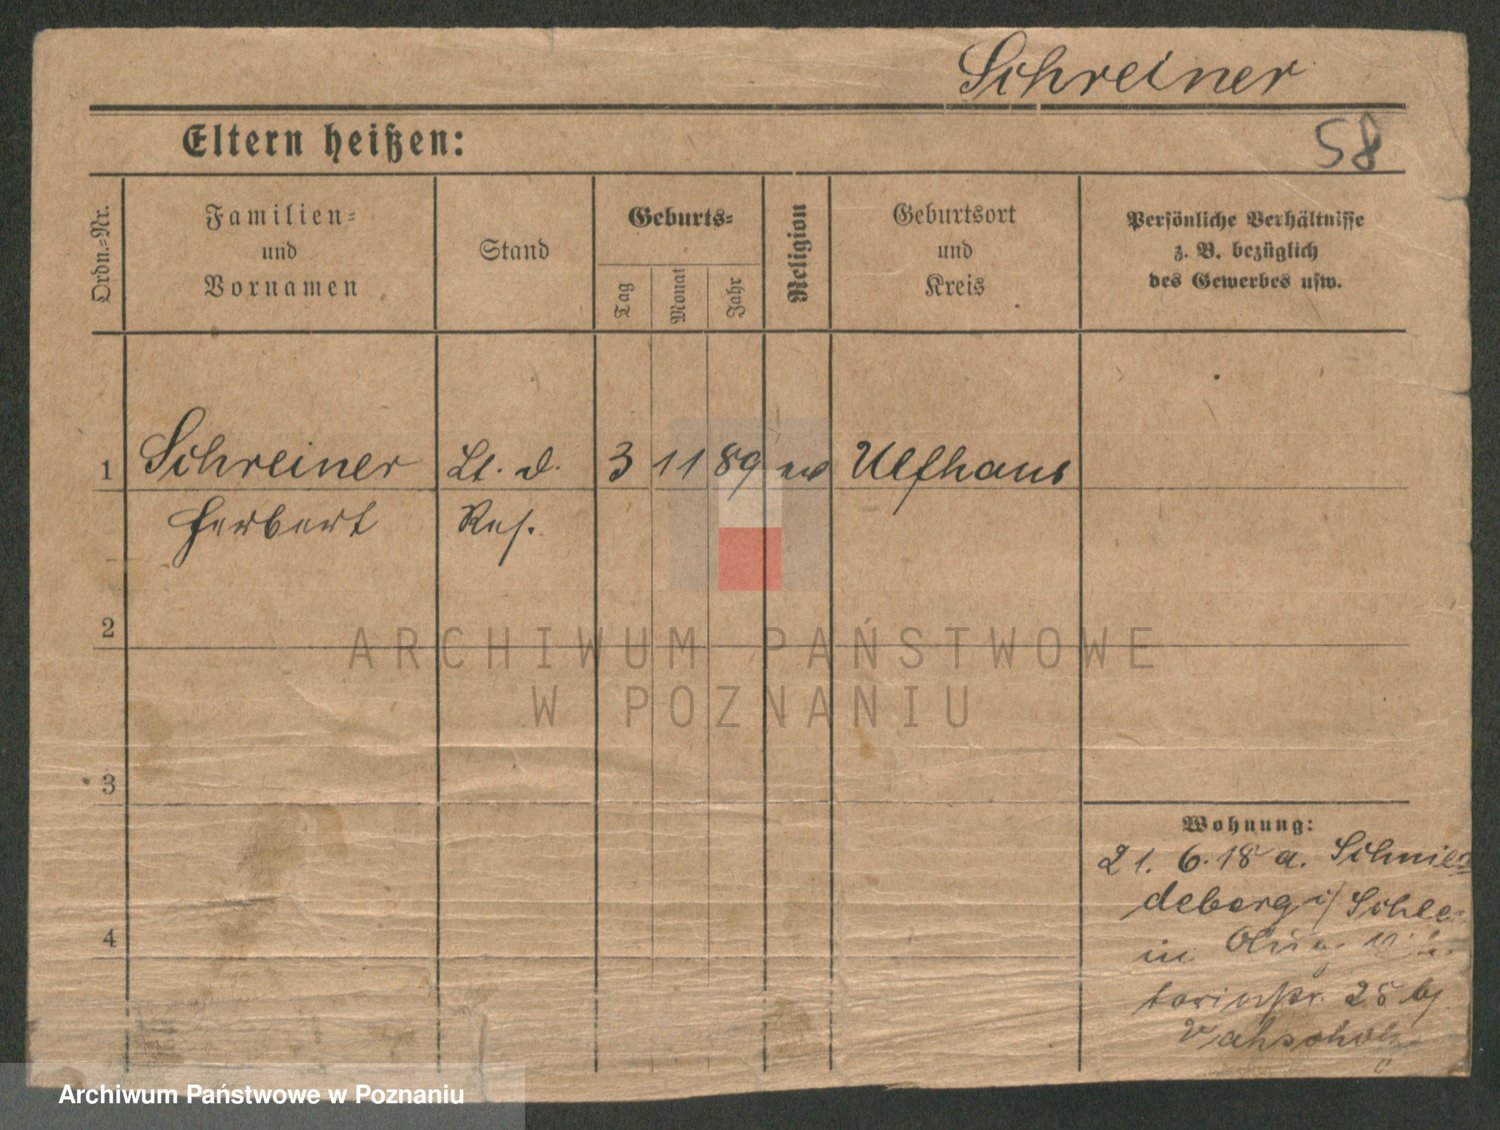 Schreiner
58
Eltern heißen:
Ordn.-Nr.
Familien-
und
Vornamen
Stand
Geburts-
Tag
Monat
Jahr
Religion
Geburtsort
und
Kreis
Persönliche Verhältnisse
z. B. bezüglich
des Gewerbes usw.
1 Schreiner Lt. d. 3 11 89 ev Ulfhaus
Herbert Res.
2
ARCHIWUM PAŃSTWOWE
W POZNANIU
3
4
Wohnung:
21. 6. 18 a. Schmie
deberg i/ Schle
in
25 bj
Archiwum Państwowe w Poznaniu